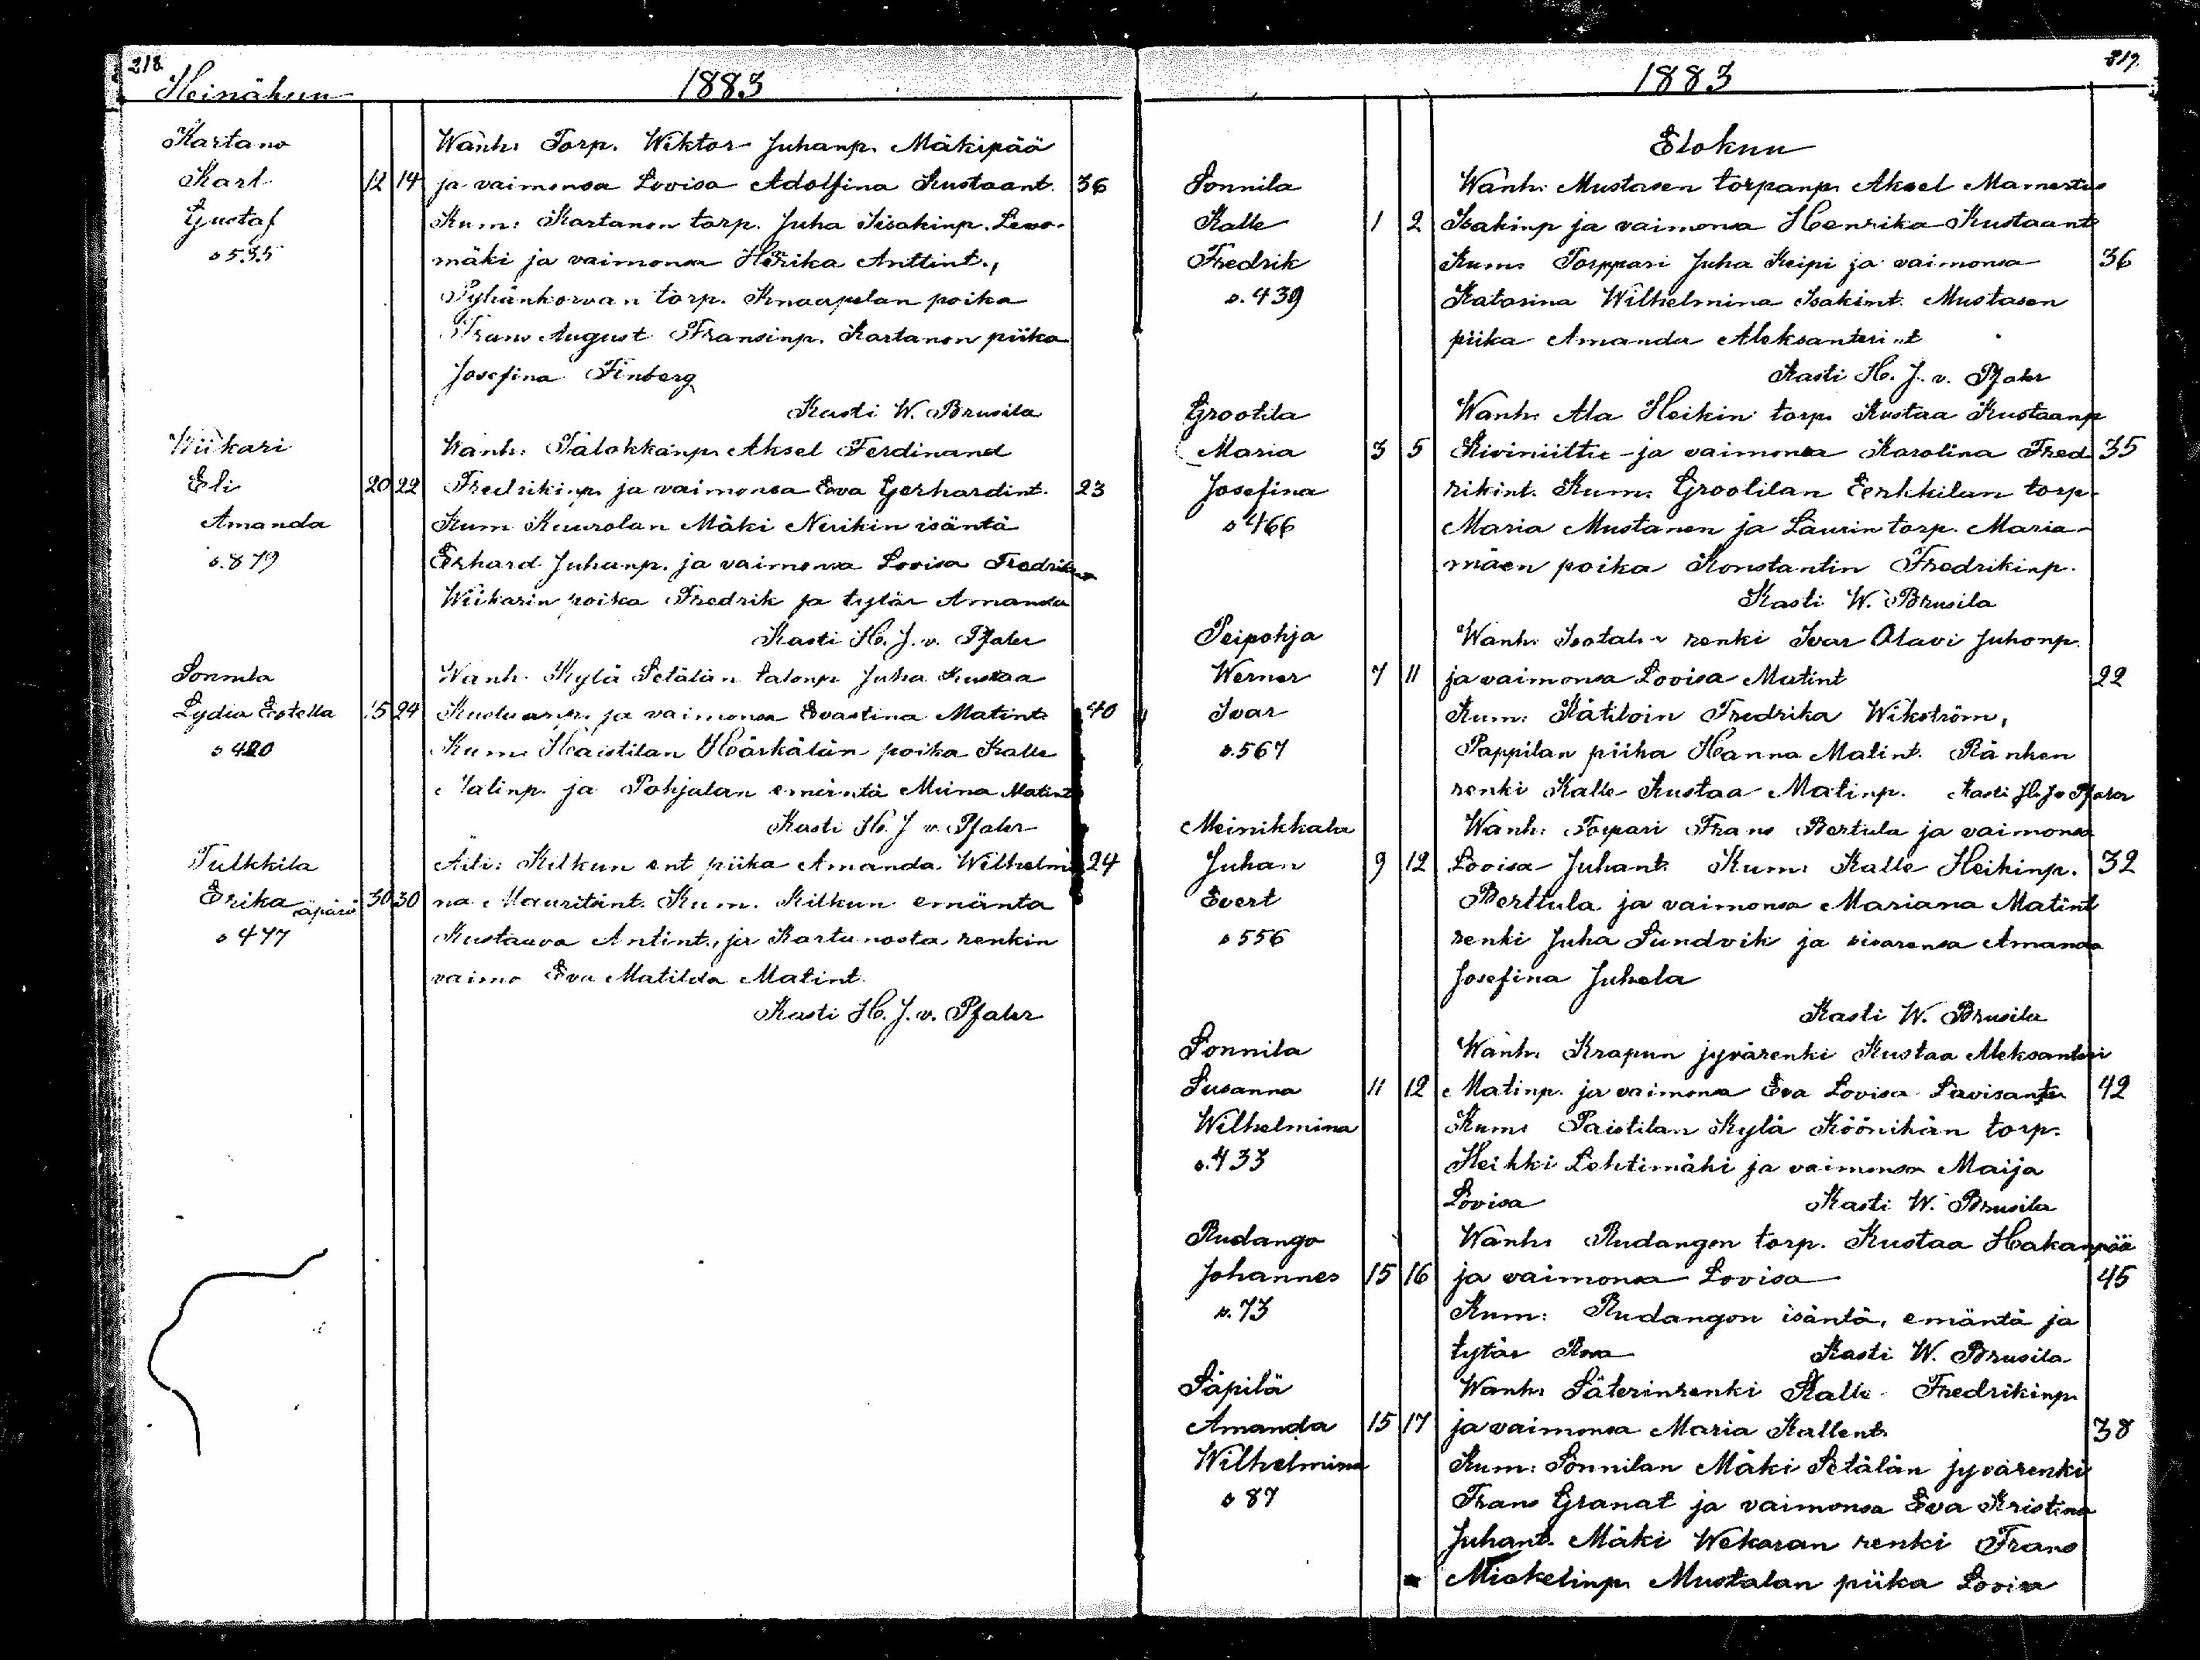 218.
Heinäkuu 1883
Kartano Wanh. Torp. Wiktor Juhanp. Mäkipää
Karl 12 14 ja vaimonsa Lovisa Adolfina Kustaant. 36
Gustaf Kum: Kartanon torp. Juha Iisakinp. Levo-
s 535 mäki ja vaimonsa Henrika Anttint.,
Pyhänkorvan torp. Knaapelan poika
Frans August Fransinp. Kartanon piika
Josefina Finberg
Kasti W. Brusila
Wiikari Wanh: Talokkanp. Aksel Ferdinand
Eli 20 22 Fredrikinp. ja vaimonsa Eva Gerhardint. 23
Amanda Kum Kuurolan Mäki Nerikin isäntä
s. 879 Erhard Juhanp. ja vaimonsa Lovisa
Wiikarin poika Fredrik ja tytär Amanda
Kasti H. J. v. Pfaler
Sonnila Wanh. Kylä Setälän talonp Juha Kustaa
Lydia Estella 15 24 Kustaanp. ja vaimonsa Evastina Matint. 40
s 420 Kum. Haistilan Härkälän poika Kalle
Malinp. ja Pohjalan emäntä Miina Matint
Kasti H. J. v. Pfaler
Tulkkila Äiti: Kilkun ent piika Amanda Wilhelmi 24
Erika äpärä 30 30 na Mauritsint. Kum. Kilkun emäntä
s 477 Kustaava Antint., ja Kartanosta renkin
vaimo Eva Matilda Matint.
Kasti H. J. v. Pfaler
219.
1883
Elokuu
Sonnila Wanh. Mustasen torpanp. Aksel Mamertus
Kalle 1 2 Isakinp ja vaimonsa Henrika Kustaant
Fredrik Kum: Torppari Juha Keipi ja vaimonsa 36
s. 439 Katarina Wilhelmina Isakint. Mustasen
piika Amanda Aleksanterint
Kasti H. J. v. Pfaler
Grootila Wanh. Ala Heikin torp. Kustaa Kustaanp
Maria 3 5 Kiviniittu ja vaimonsa Karolina Fred 35
Josefina rikint. Kum. Grootilan Eerkkilan torp.
s 466 Maria Mustanen ja Laurin torp. Maria-
mäen poika Konstantin Fredrikinp.
Kasti W. Brusila
Peipohja Wanh. Isotalon renki Ivar Olavi Juhonp.
Werner 7 11 ja vaimonsa Lovisa Matint 22
Ivar Kum: Kätiloin Fredrika Wikström,
s. 567 Pappilan piika Hanna Matint. Ränken
renki Kalle Kustaa Matinp. Kasti H. J. v Pfaler
Meinikkala Wanh: Torpari Frans Bertula ja vaimonsa
Juhan 9 12 Lovisa Juhant. Kum: Kalle Heikinp. 32
Evert Berttula ja vaimonsa Mariana Matint
s 556 renki Juha Sundvik ja sisarensa Amanda
Josefina Juhela
Kasti W. Brusila
Sonnila Wanh. Krapun jyvärenki Kustaa Aleksanteri
Susanna 11 12 Matinp. ja vaimonsa Eva Lovisa 42
Wilhelmina Kum: Paistilan Kylä Köönikän torp.
s. 433 Heikki Lehtimäki ja vaimonsa Maija
Lovisa Kasti W. Brusila
Rudango Wanh. Rudangon torp. Kustaa Hakanpää
Johannes 15 16 ja vaimonsa Lovisa 45
s. 73 Kum: Rudangon isäntä, emäntä ja
tytär Kasti W. Brusila
Säpilä Wanh. Säterinrenki Kalle Fredrikinp.
Amanda 15 17 ja vaimonsa Maria Kallent. 38
Wilhelmina Kum: Sonnilan Mäki Setälän jyvärenki
s 87 Frans Granat ja vaimonsa Eva Kristina
Juhant. Mäki Wekaran renki Frans
Mickelinp. Mustalan piika Lovisa